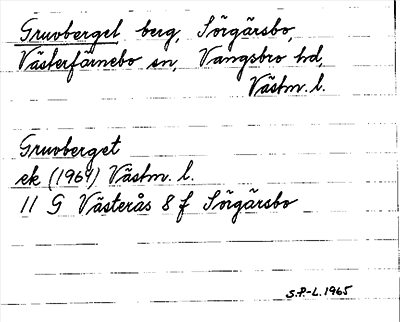 Gruvberget, berg, Sörgärsbo,
Västerfärnebo sn, Vangsbro hd,
Västm. l.
Gruvberget
ek (1964) Västm. l.
11 G Västerås 8 f Sörgärsbo
S.P.-L. 1965